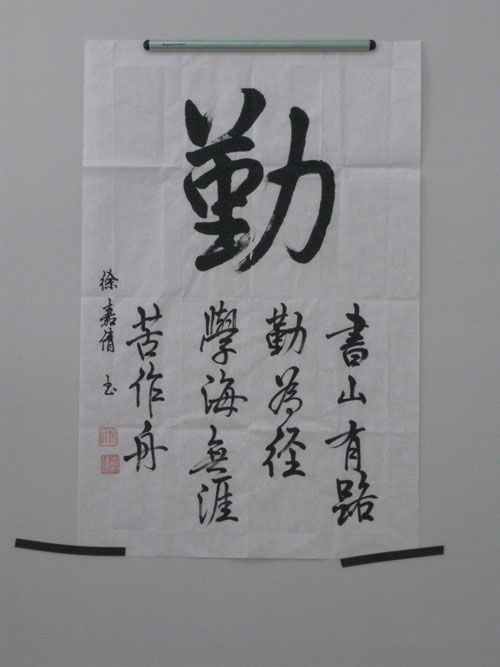 勤
書山有路
勤為径
學海無涯
苦作舟
徐嘉倩